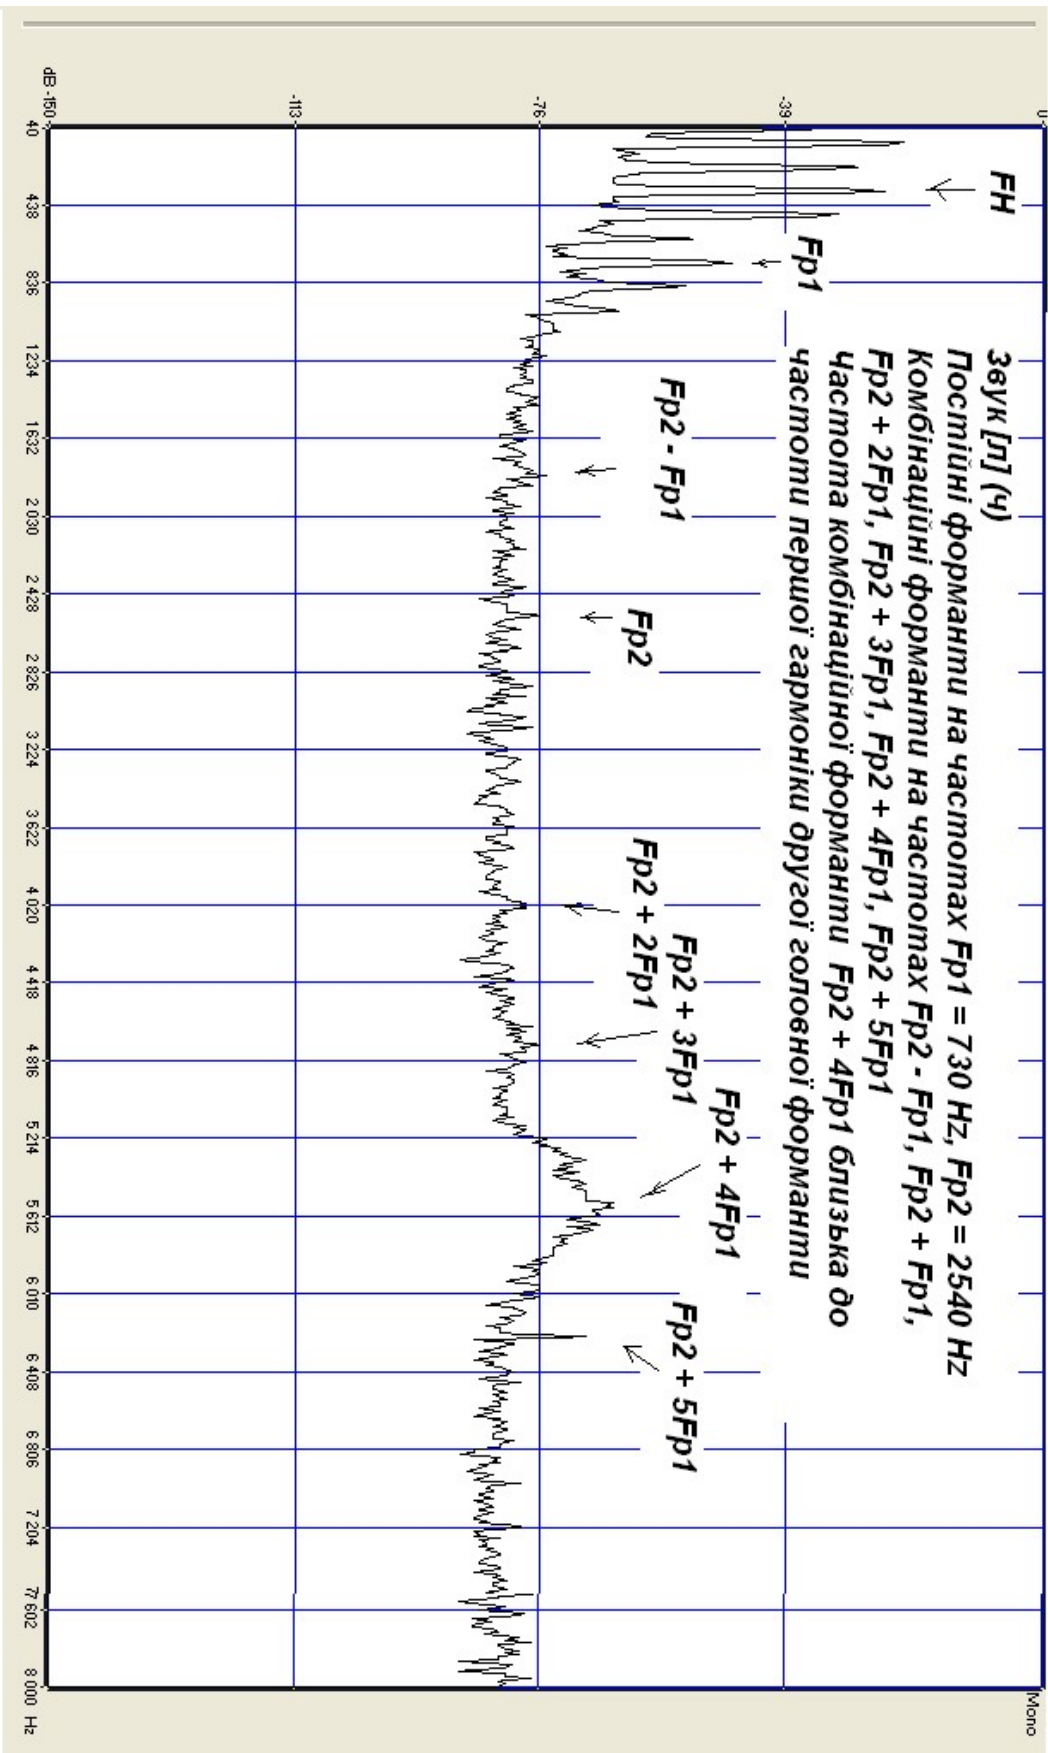 Mono
0
-39
-76
-113
dB -150
FH
Fp1
Звук [л] (ч)
Постійні форманти на частотах Fp1 = 730 Hz, Fp2 = 2540 Hz
Комбінаційні форманти на частотах Fp2 - Fp1, Fp2 + Fp1,
Fp2 + 2Fp1, Fp2 + 3Fp1, Fp2 + 4Fp1, Fp2 + 5Fp1
Частота комбінаційної форманти Fp2 + 4Fp1 близька до
частоти першої гармоніки другої головної форманти
Fp2 - Fp1
Fp2
Fp2 + 2Fp1
Fp2 + 3Fp1
Fp2 + 4Fp1
Fp2 + 5Fp1
40 438 836 1 234 1 632 2 030 2 428 2 826 3 224 3 622 4 020 4 418 4 816 5 214 5 612 6 010 6 408 6 806 7 204 7 602 8 000 Hz